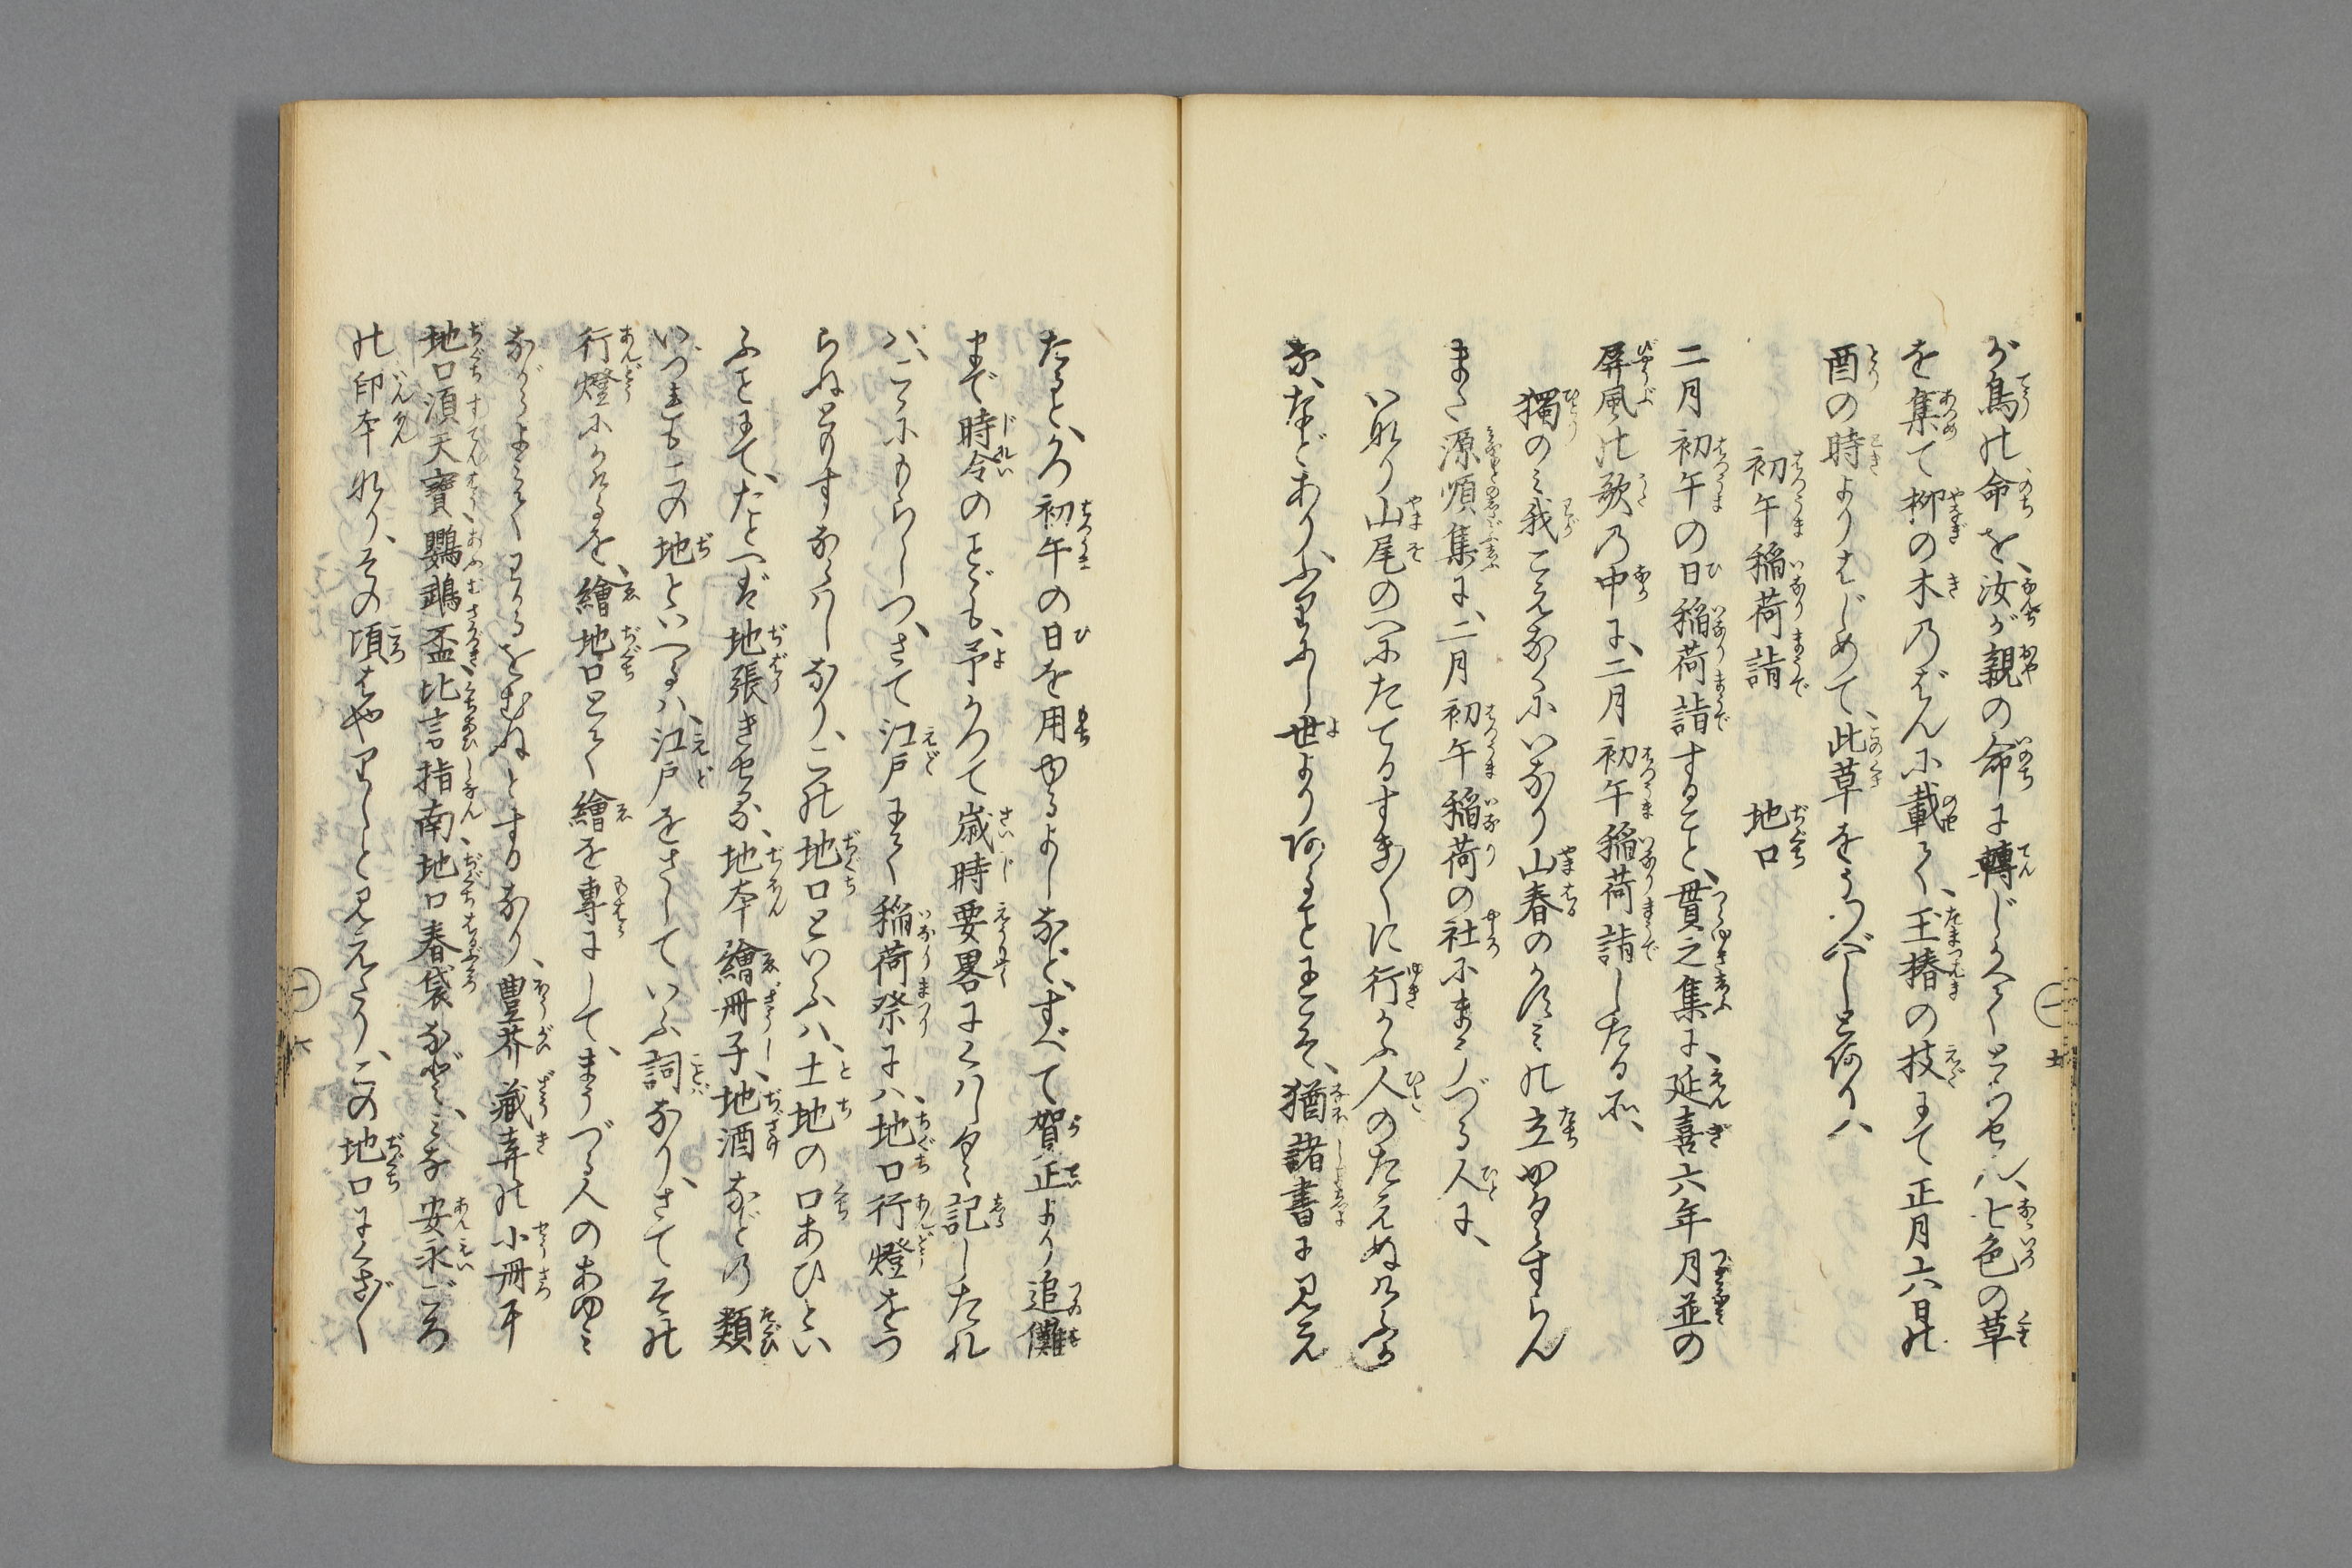 が鳥の命を、汝が親の命に轉じかへてとらせん、七色の草
を集て柳の木のばんに載て、玉椿の枝にて正月六日の
酉の時よりはじめて、此草をうつべしとありハ
初午稲荷詣 地口
二月初午の日稲荷詣すること、貫之集に、延喜六年月並の
屏風の歌の中に、二月初午稲荷詣したる所、
獨のミ我こえなくにいなり山春のかすミの立かくすらん
また源順集に、二月初午稲荷の社にまうづる人に、
いなり山尾のへにたてるすぎ〳〵に行かふ人のたえぬけふか
な、などありふりにし世よりあることにこそ、猶諸書に見え
たると、かつ初午の日を用ゆるよしなど、すべて賀正より追儺
まで時令のことども、予かつて歳時要畧にくハしく記したれ
バ、こゝにもらしつ、さて江戸にて稲荷祭にハ、地口行燈をつ
らぬとりすならハしなり、この地口といふハ、土地の口あひとい
ふことにて、たとへバ地張きせる、地本繪冊子、地酒などの類
いづれもこの地といへるハ、江戸をさしていふ詞なり、さてその
行燈にかけるを、繪地口とて繪を專にして、まうづる人のあゆミ
ながらよミてわかるをむねとするなり、豊芥藏弆の小冊子
地口須天寶、鸚鵡盃、比言指南、地口春袋など、ミな安永ごろ
の印本なり、その頃はやりしと見えたり、この地口にくさ〴〵